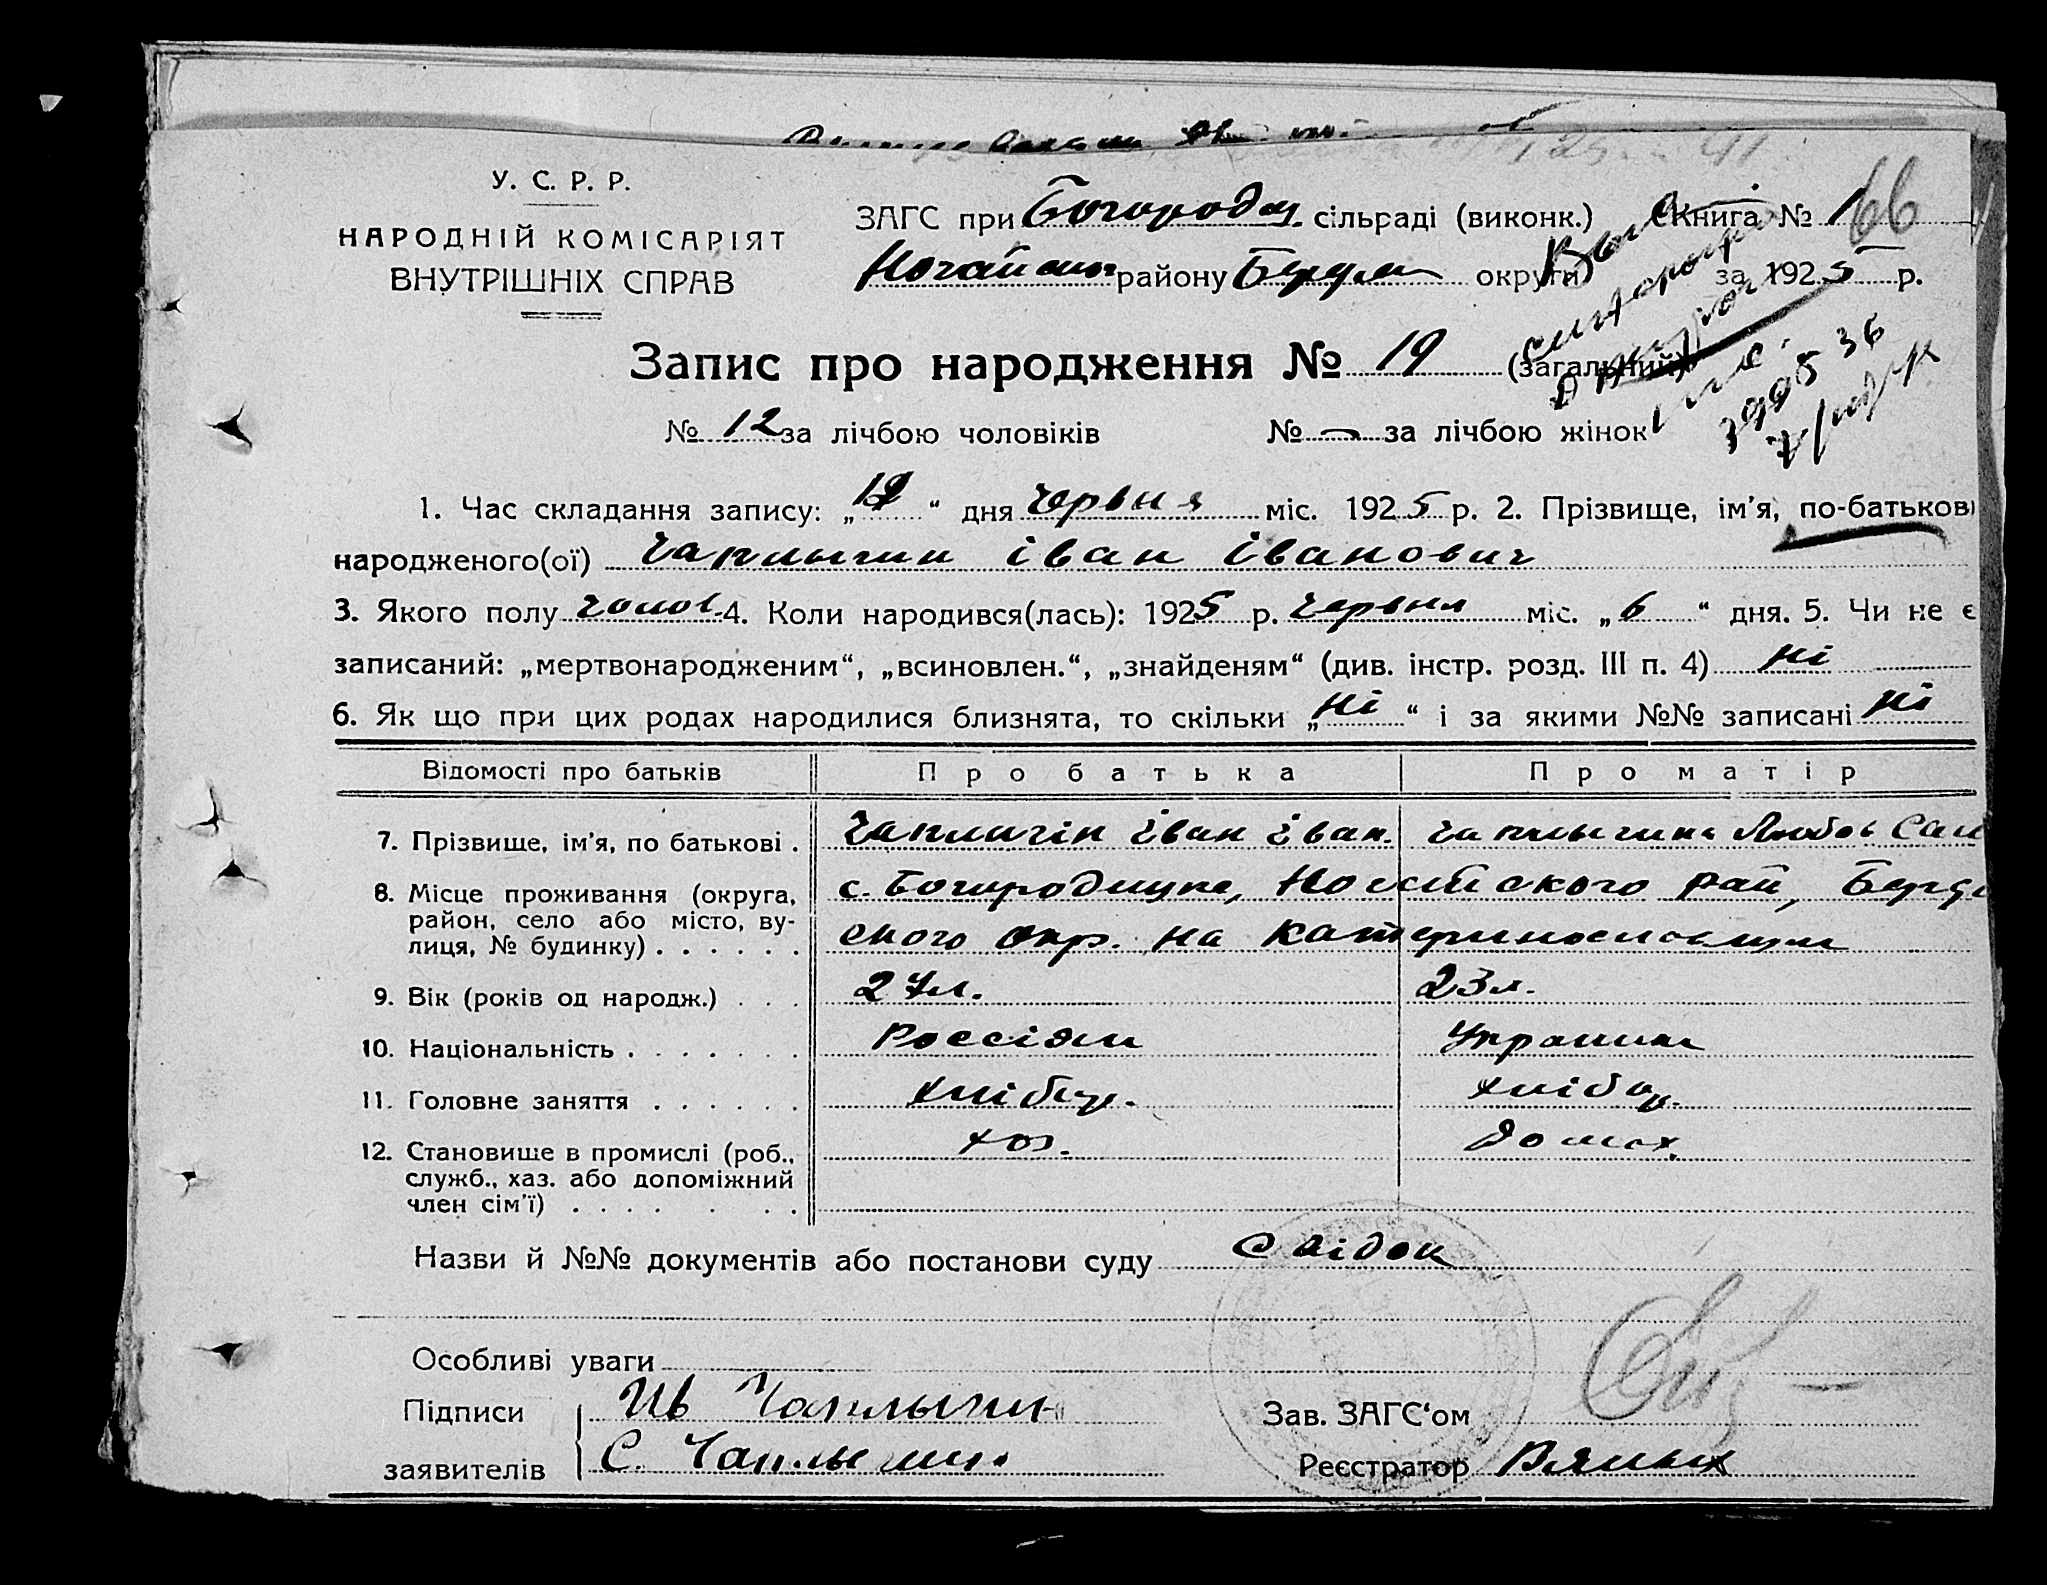 У. С. Р. Р.
НАРОДНІЙ КОМІСАРІЯТ
ВНУТРІШНІХ СПРАВ
ЗАГС при Богородиц. сільраді (виконк.) Книга № 1 66
району округи за 1925 р.
Запис про народження № 19 (загальний)
№ 12 за лічбою чоловіків № — за лічбою жінок
1. Час складання запису: „ “ дня Червня міс. 1925 р. 2. Прізвище, ім’я, по-батькові
народженого(ої) Чаплыгин Іван Іванович
3. Якого полу Чолов. 4. Коли народився(лась): 1925 р. Червня міс. „6“ дня. 5. Чи не є
записаний: „мертвонародженим“, „всиновлен.“, „знайденям“ (див. інстр. розд. III п. 4) Ні
6. Як що при цих родах народилися близнята, то скільки „Ні“ і за якими №№ записані Ні
Відомості про батьків Про батька Про матір
7. Прізвище, ім’я, по батькові . Чапличін Іван Іван. Чаплыгина Любов Сам
8. Місце проживання (округа,
район, село або місто, ву-
лиця, № будинку) . . . . . .
с. Богородицке, Ногайского рай, Бердя
ского окр. на Катеринославщині
9. Вік (років од народж.) . . . 27л. 23л.
10. Національність . . . . . . . Россіян Украинка
11. Головне заняття . . . . . . Хлібор. Хлібор.
12. Становище в промислі (роб.,
служб., хаз. або допоміжний
член сім’ї) . . . . . . .
хоз. домох.
Назви й №№ документів або постанови суду Свідок
Особливі уваги
Підписи Ив Чаплыгин Зав. ЗАГС‘ом
заявителів С. Чаплыгин Реєстратор